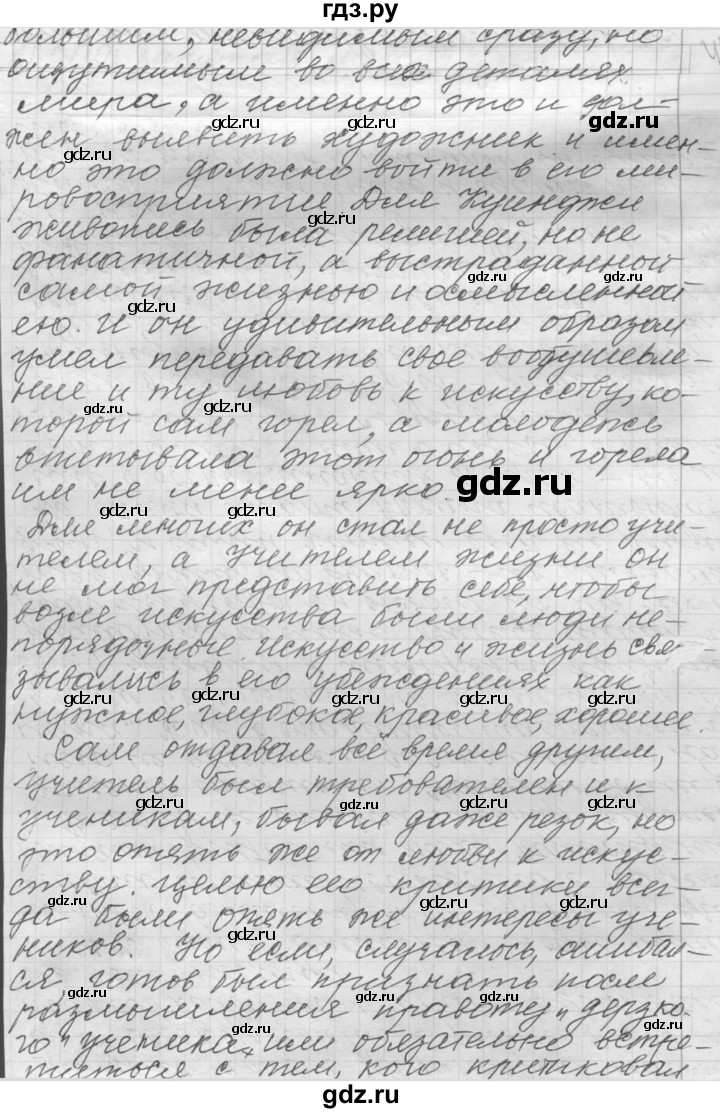 гдз.ру
большим, невидимым сразу, но
ощутимым во всех деталях
мира, а именно это и дол-
жен выявить художник и имен-
но это должно войти в его ми-
ровосприятие. Для Куинджи
живопись была религией, но не
фанатичной, а выстраданной
самой жизнью и осмысленной
ею. И он удивительным образом
умел передавать свое воодушевле-
ние и ту любовь к искусству, ко-
торой сам горел, а молодежь
впитывала этот огонь и горела
им не менее ярко.
Для многих он стал не просто учи-
телем, а учителем жизни он
не мог представить себе, чтобы
возле искусства были люди не-
порядочные. Искусство и жизнь свя-
зывались в его убеждениях как
нужное, глубокое, красивое, хорошее.
Сам отдавал всё время другим,
учитель был требователен и к
ученикам, бывал даже резок, но
это опять же от любви к искус-
ству. Целью его критики всег-
да были опять же интересы уче-
ников. Но если, случалось, ошибал-
ся, готов был признать после
размышления правоту "дерзко-
го" ученика, или обязательно встре-
титься с тем, кого критиковал
gdz.ru